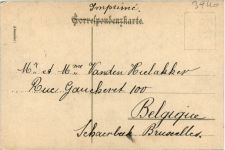 Imprimé.
Correspondenzkarte.
Mr et Mme Vanden Hielakker
Rue Gaucheret 100
Belgique
Schaerbeek Bruxelles.